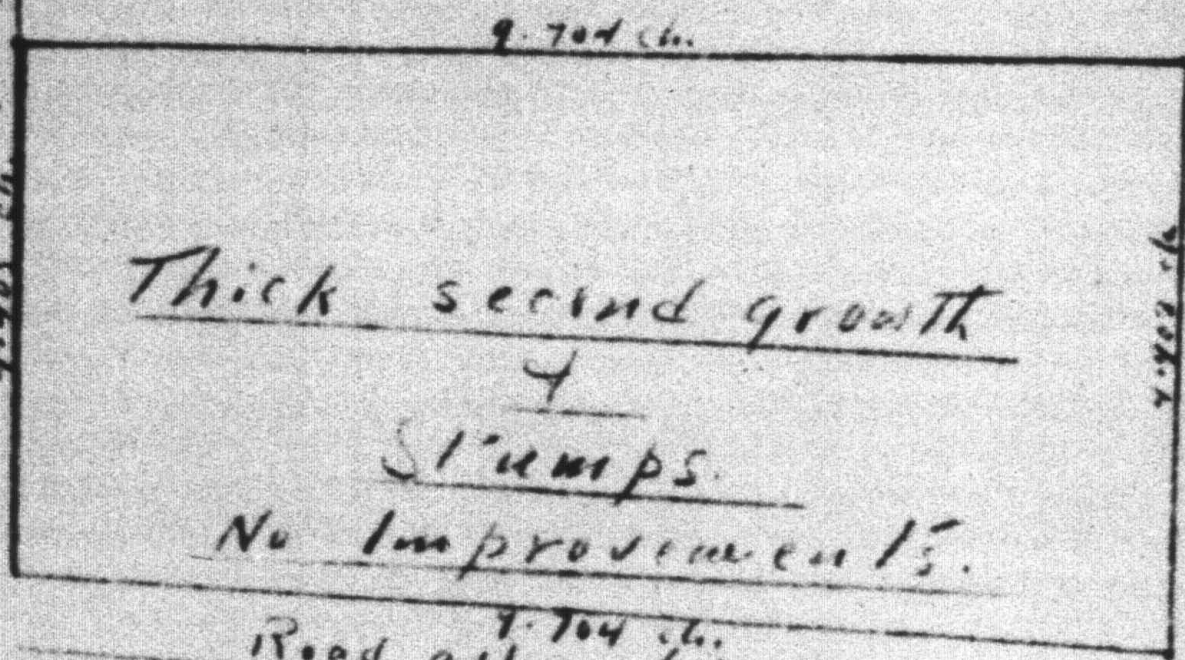 9.704 ch.
Thick second growth
&
Stumps.
No Improvements.
9.704 ch.
Road